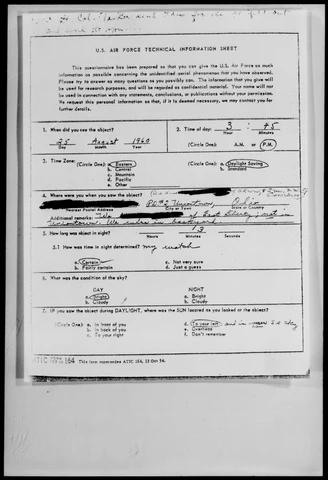 U.S. AIR FORCE TECHNICAL INFORMATION SHEET
This questionnaire has been prepared so that you can give the U.S. Air Force as much
information as possible concerning the unidentified aerial phenomenon that you have observed.
Please try to answer as many questions as you possibly can. The information that you give will
be used for research purposes, and will be regarded as confidential material. Your name will not
be used in connection with any statements, conclusions, or publications without your permission.
We request this personal information so that, if it is deemed necessary, we may contact you for
further details.
1. When did you see the object?
25 August 1960
Day Month Year
2. Time of day: 3 45
Hour Minutes
(Circle One): A.M. or P.M.
3. Time Zone:
(Circle One): a. Eastern
b. Central
c. Mountain
d. Pacific
e. Other
(Circle One): a. Daylight Saving
b. Standard
4. Where were you when you saw the object?
Uniontown, Ohio
Nearest Postal Address City or Town State or County
Additional remarks: of East Liberty just in
Uniontown. We
5. How long was object in sight? 13
Hours Minutes Seconds
5.1 How was time in sight determined? my watch
a. Certain c. Not very sure
b. Fairly certain d. Just a guess
6. What was the condition of the sky?
DAY NIGHT
a. Bright a. Bright
b. Cloudy b. Cloudy
7. IF you saw the object during DAYLIGHT, where was the SUN located as you looked at the object?
(Circle One): a. In front of you d. To your left and in
b. In back of you e. Overhead
c. To your right f. Don't remember
ATIC FORM 164 This form supersedes ATIC 164, 13 Oct 54.